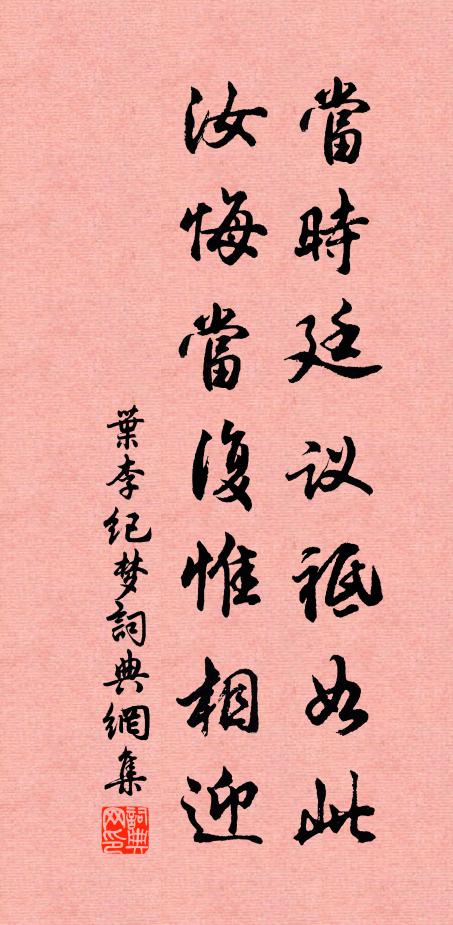 當時廷议祗如此
汝悔當復惟相迎
葉李纪梦詞典網集
詞典网印